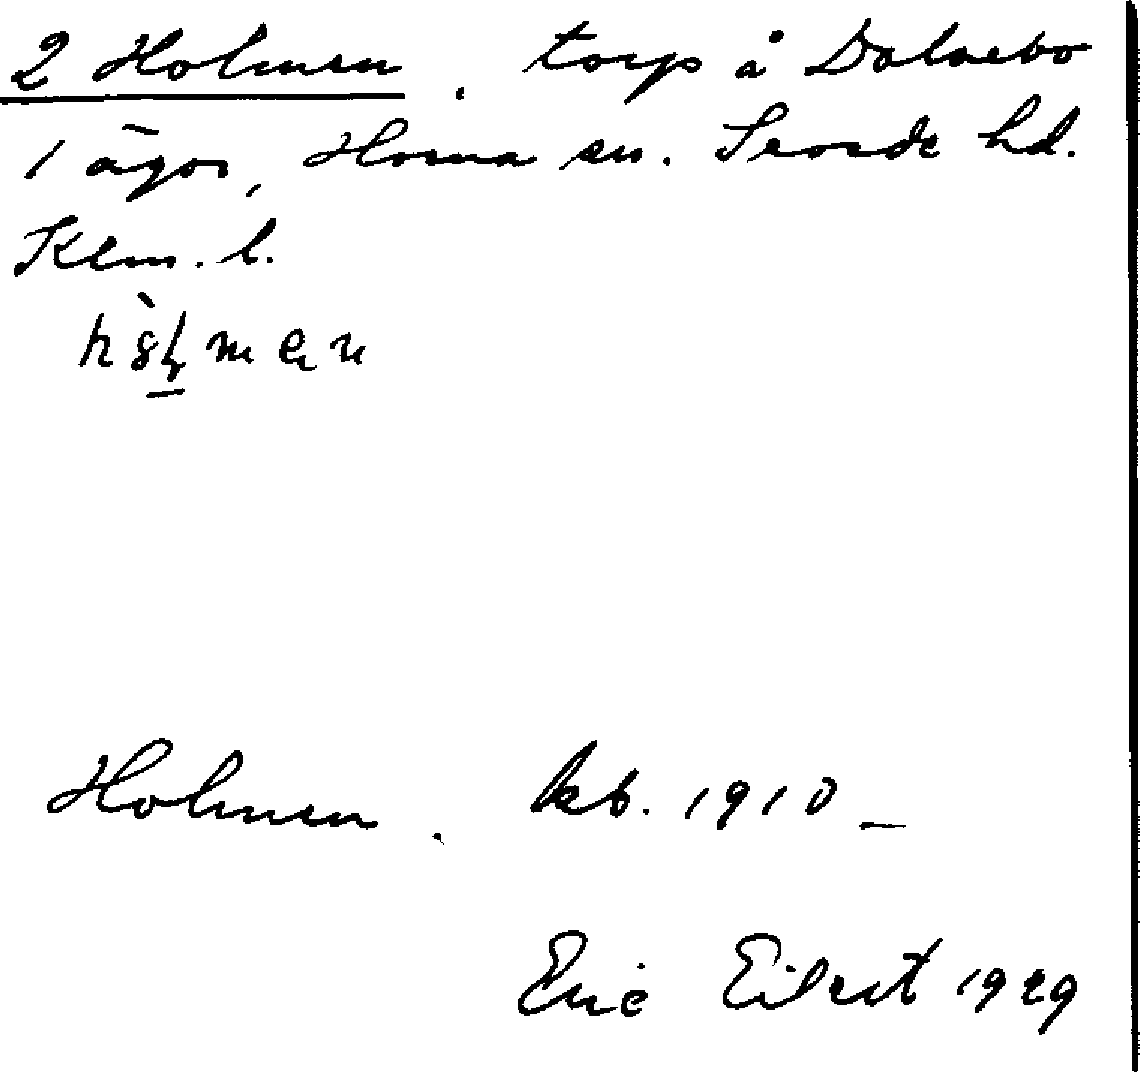 2 Holmen. torp å Dalsebo
1 ägor, Horna sn. Sevede hd.
Klm. l.
Holmen. kb. 1910 –
Eric Eilert 1929